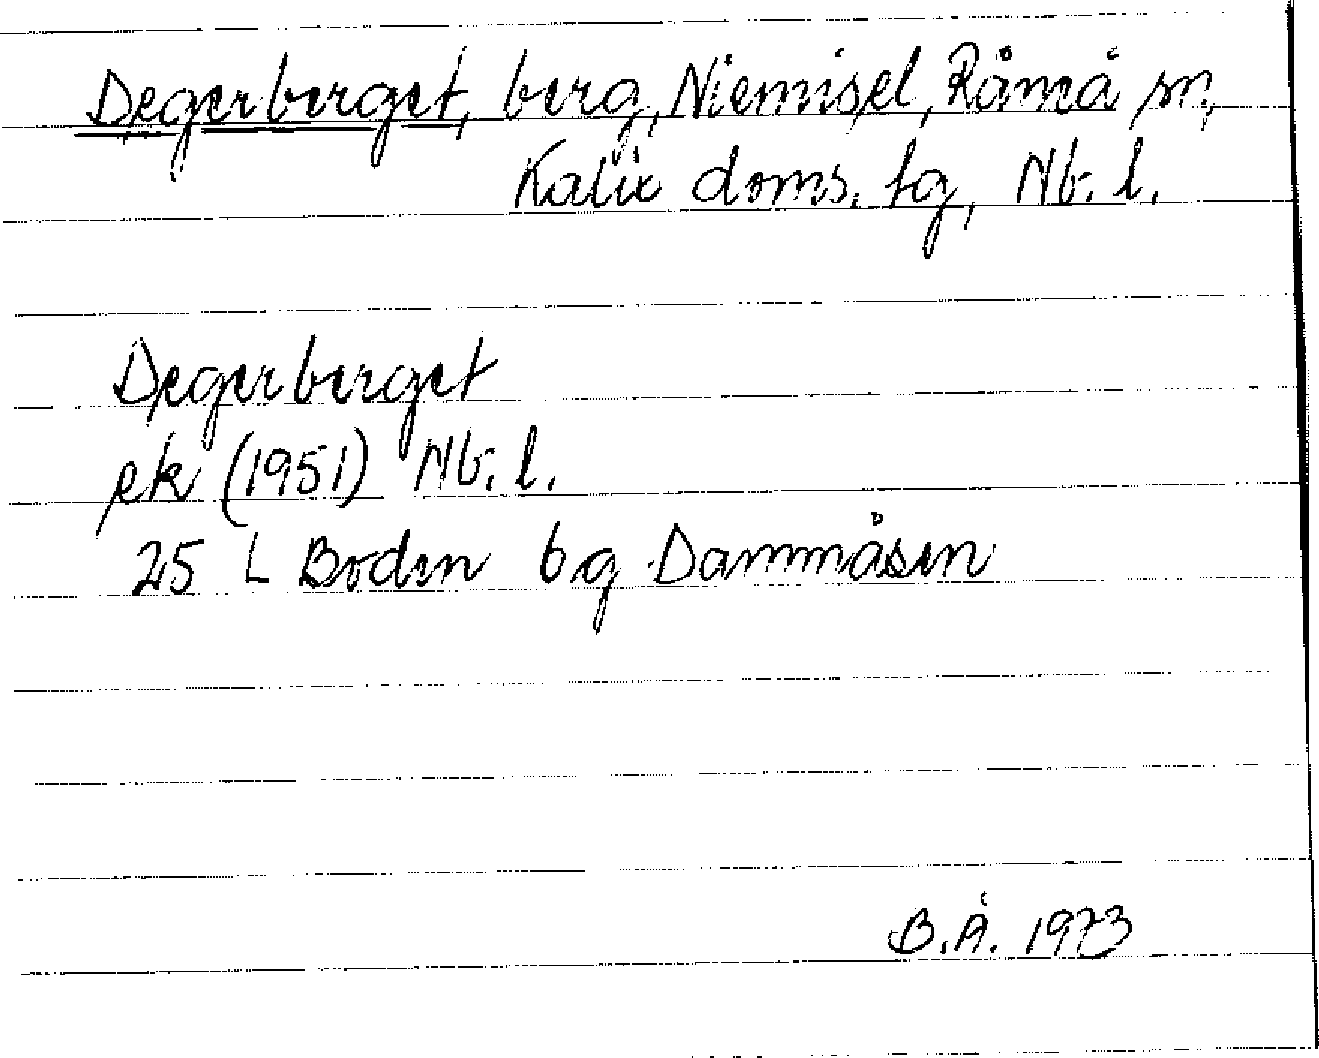 Degerberget, berg, Niemisel, Råneå sn,
Kalix doms. fg, Nb. l.
Degerberget
ek (1951) Nb. l.
25 L Boden bg Dammåsen
B.Å. 1973